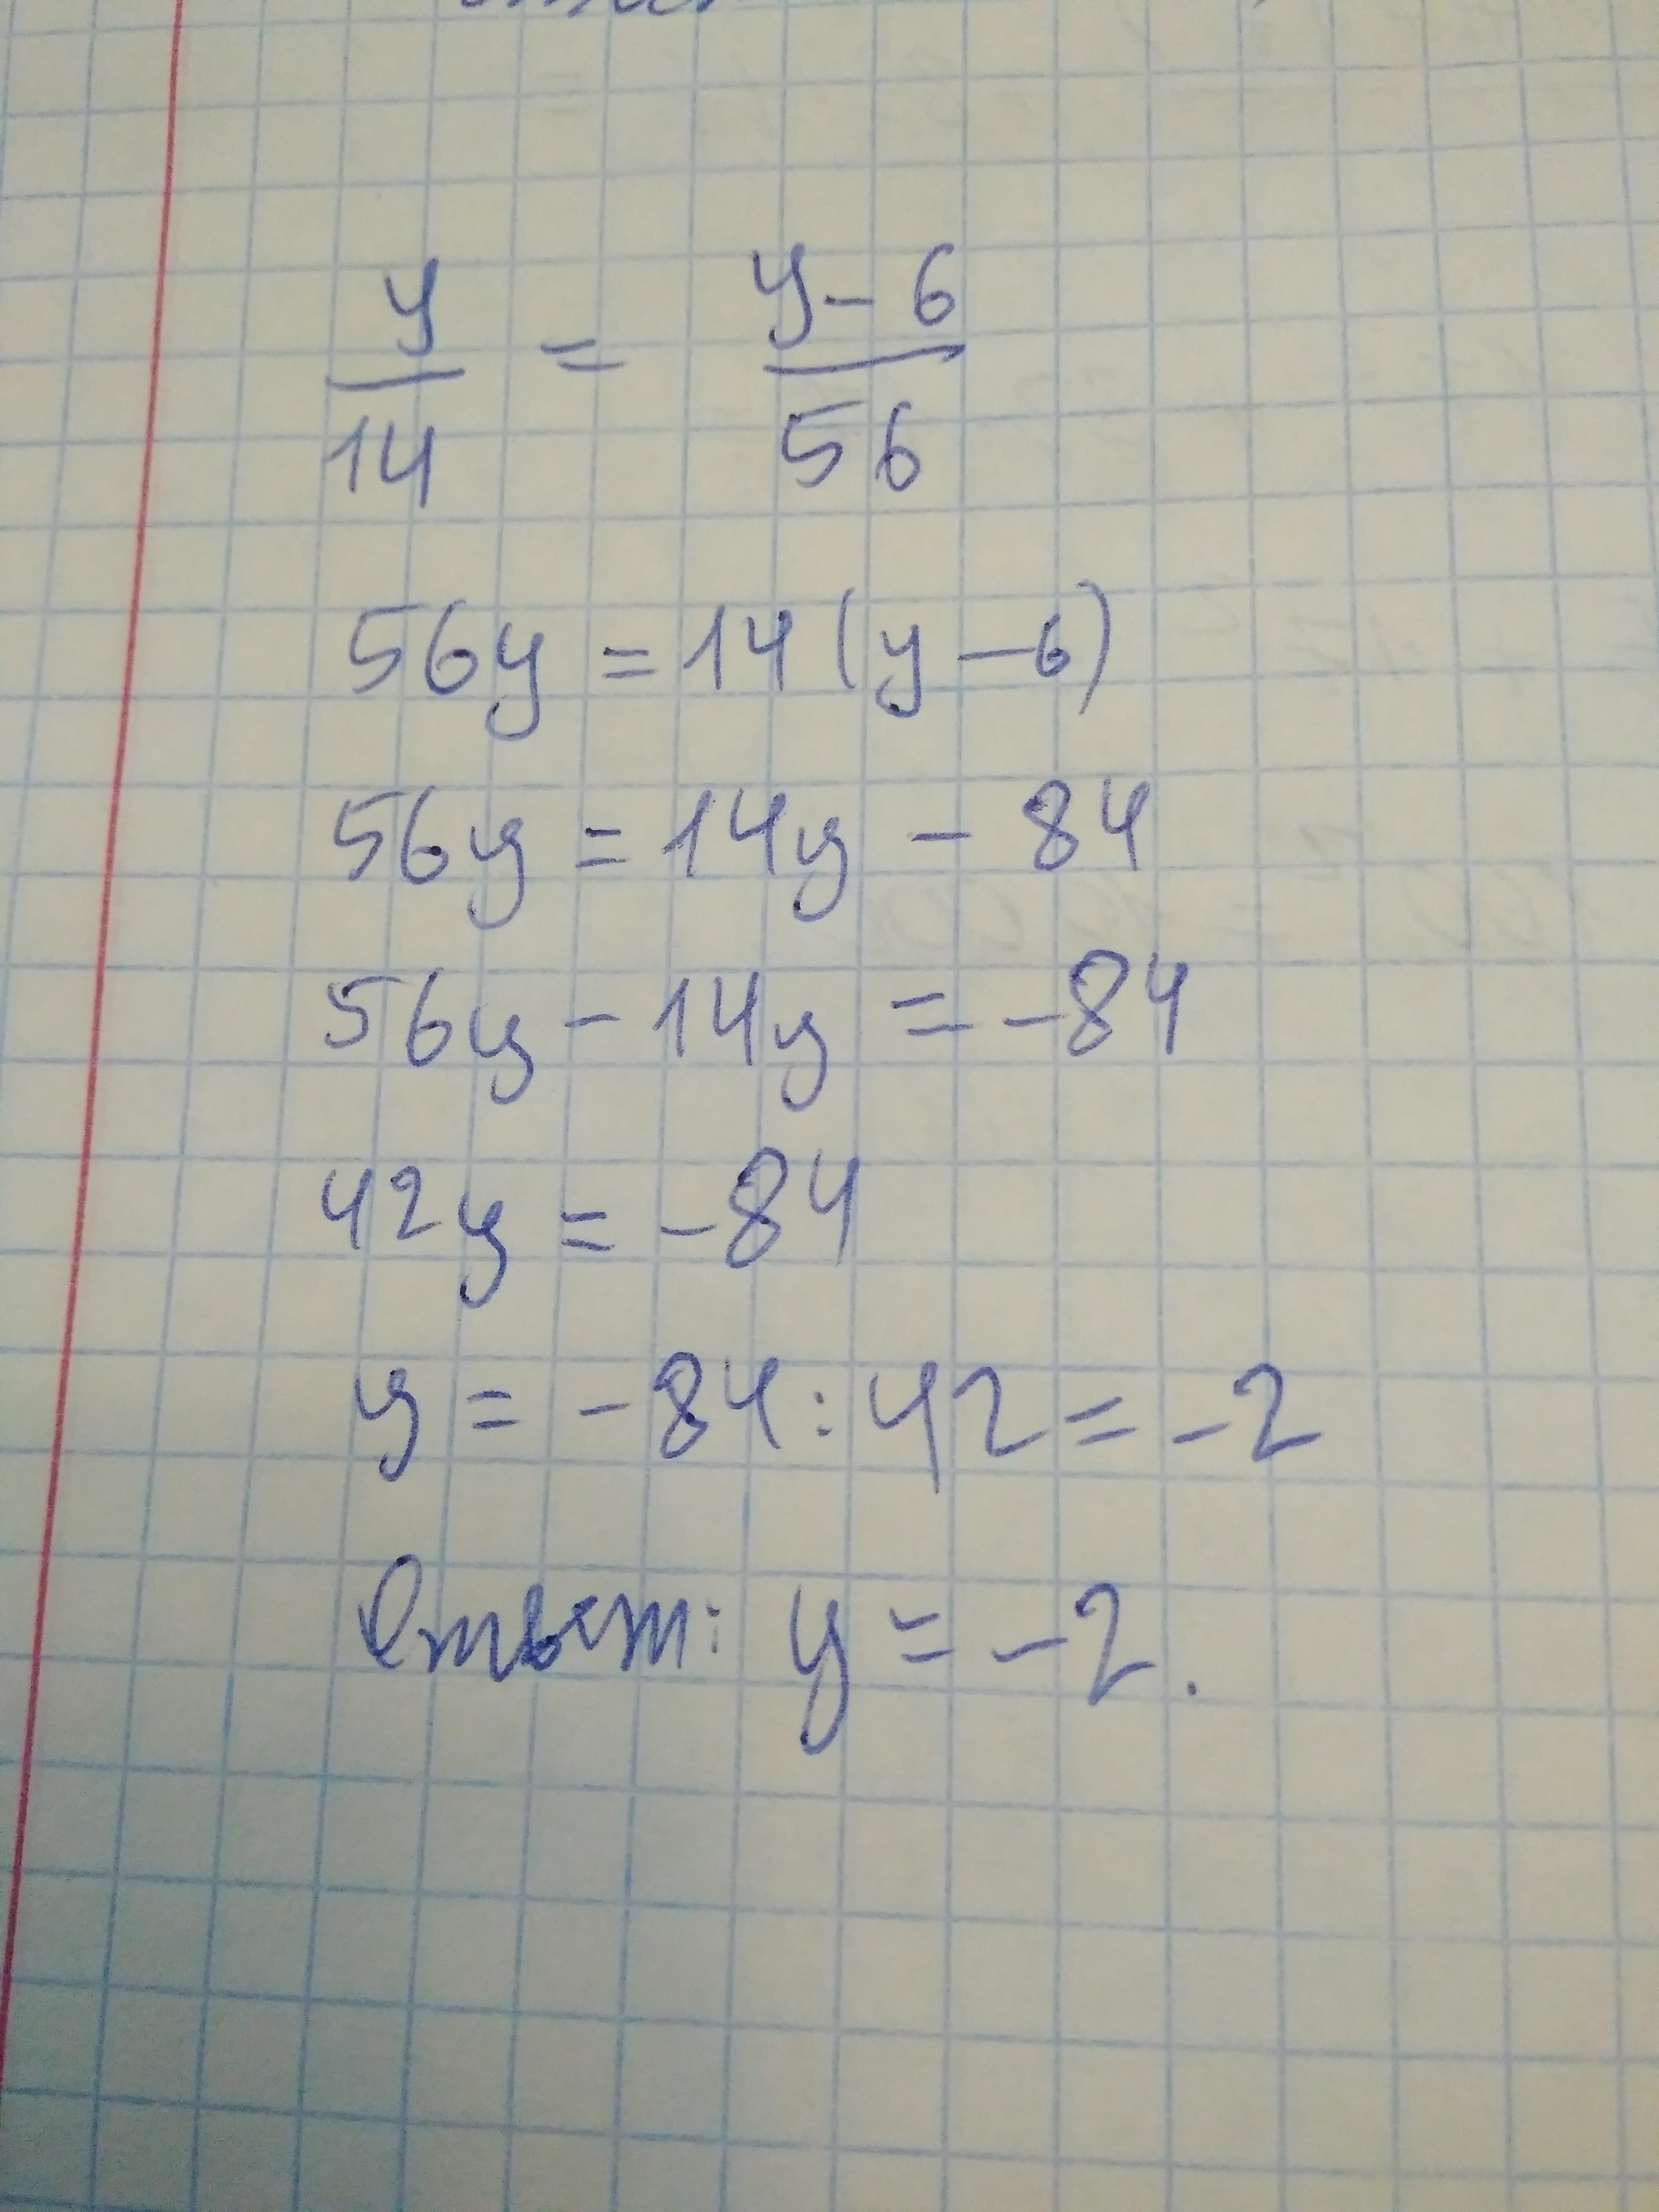 y/14 = y-6/56
56y = 14(y-6)
56y = 14y - 84
56y - 14y = -84
42y = -84
y = -84:42 = -2
Ответ: y = -2.